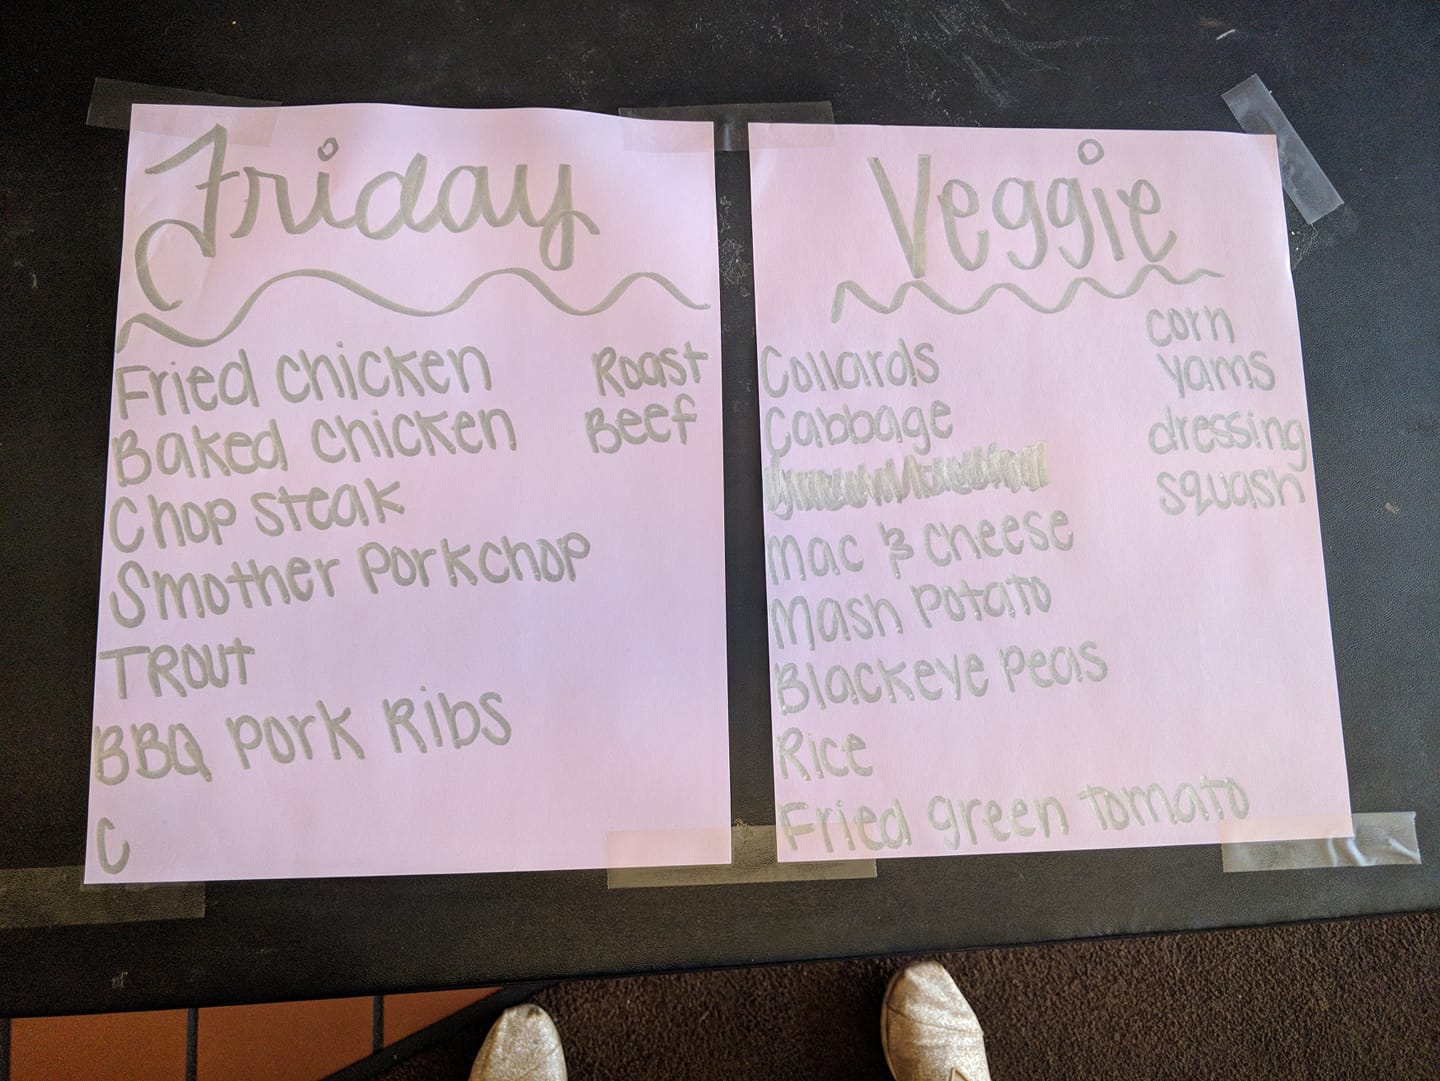 Friday
Fried chicken
Baked chicken
Chop steak
Smother Porkchop
TRout
BBQ Pork Ribs
C
Roast
Beef
Veggie
Collards
Cabbage
Mac & cheese
Mash Potato
Blackeye Peas
Rice
Fried green tomato
corn
yams
dressing
squash